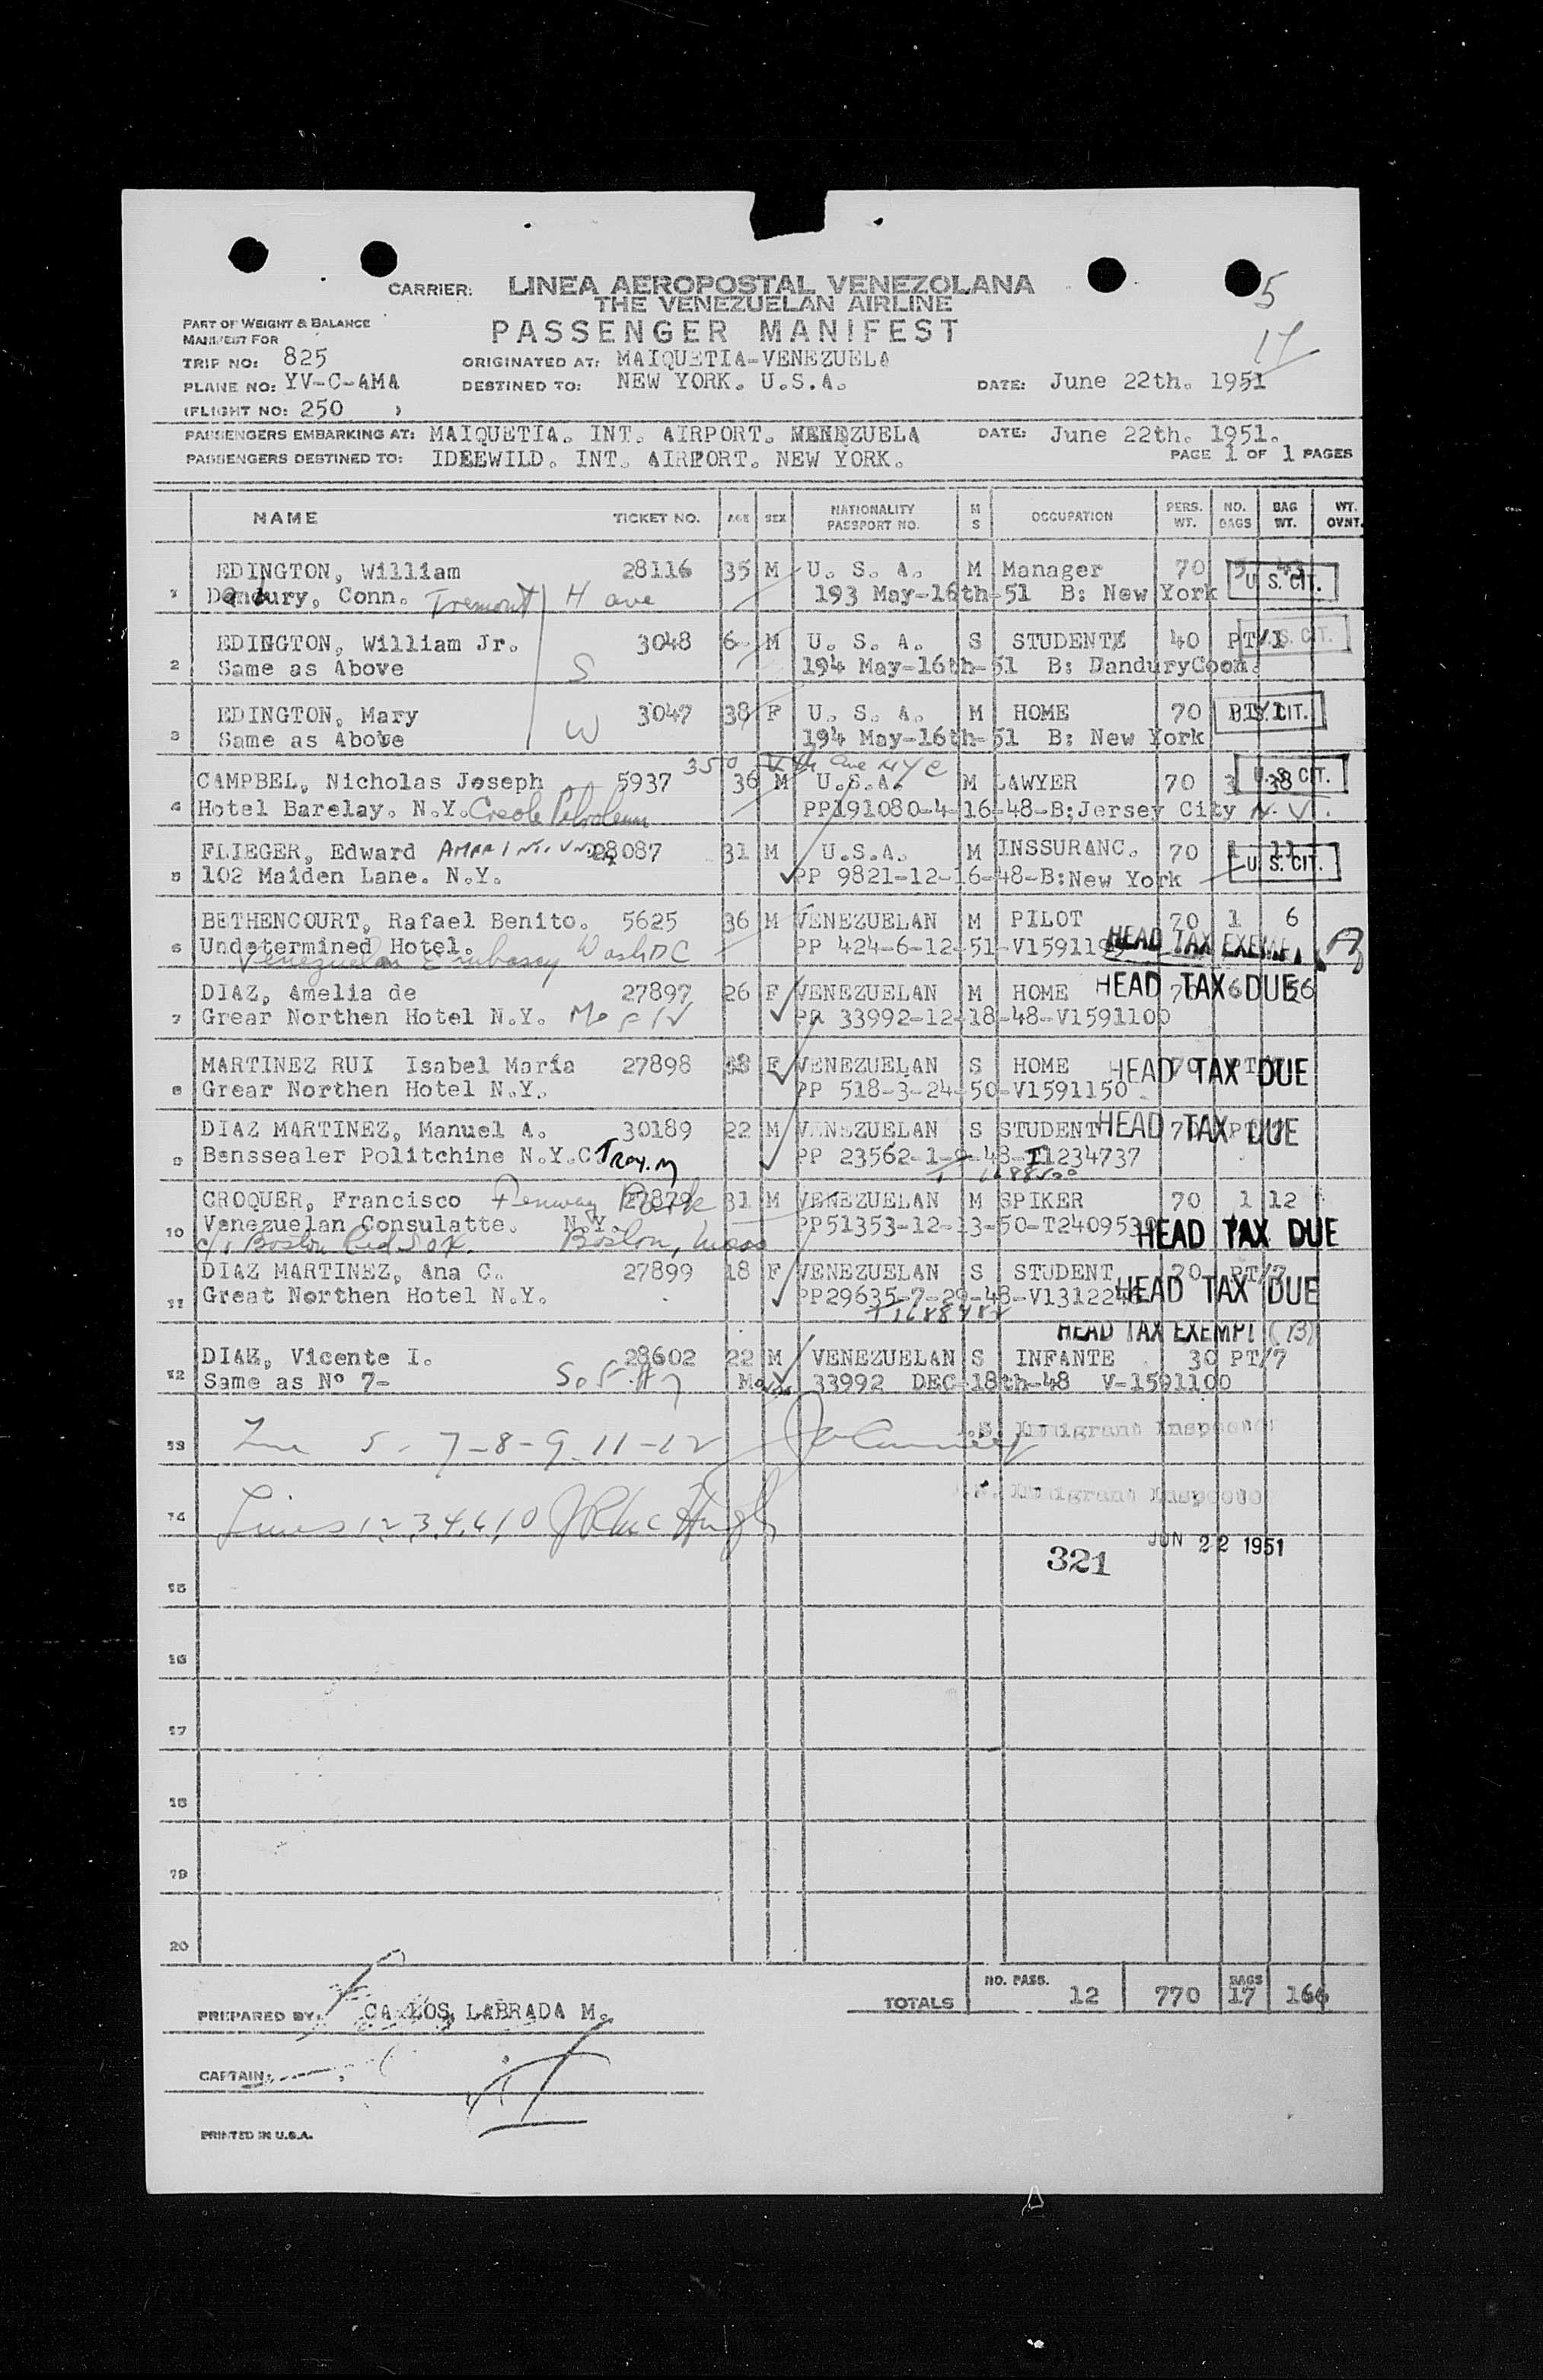 5
17
CARRIER: LINEA AEROPOSTAL VENEZOLANA
THE VENEZUELAN AIRLINE
PASSENGER MANIFEST
PART OF WEIGHT & BALANCE
MANIFEST FOR
TRIP NO: 825 ORIGINATED AT: MAIQUETIA-VENEZUELA
PLANE NO: YV-C-AMA DESTINED TO: NEW YORK. U.S.A. DATE: June 22th. 1951
(FLIGHT NO: 250 )
PASSENGERS EMBARKING AT: MAIQUETIA. INT. AIRPORT. VENEZUELA DATE: June 22th. 1951.
PASSENGERS DESTINED TO: IDEEWILD. INT. AIRPORT. NEW YORK. PAGE 1 OF 1 PAGES
NAME TICKET NO. AGE SEX NATIONALITY PASSPORT NO. M S OCCUPATION PERS. WT. NO. BAGS BAG WT. WT. OVNT.
EDINGTON, William 28116 35 M U. S. A. M Manager 70 5 43
1 Dandury, Conn. Tremont H ave 193 May-16th-51 B: New York U. S. CIT.
EDINGTON, William Jr. 3048 6 M U. S. A. S STUDENT 40 PT/1 U. S. CIT.
2 Same as Above S 194 May-16th-51 B: DanduryCoon.
EDINGTON, Mary 3047 38 F U. S. A. M HOME 70 PT/1 U. S. CIT.
3 Same as Above W 194 May-16th-51 B: New York
350 Vth ave NYC
CAMPBEL, Nicholas Joseph 5937 36 M U.S.A. M LAWYER 70 3 38 U. S. CIT.
4 Hotel Barelay. N.Y. Creole Petroleum PP191080-4-16-48-B;Jersey City N.
FLIEGER, Edward 28087 31 M U.S.A. M INSSURANC. 70 1 11
5 102 Maiden Lane. N.Y. PP 9821-12-16-48-B:New York U. S. CIT.
BETHENCOURT, Rafael Benito. 5625 36 M VENEZUELAN M PILOT 70 1 6
6 Undetermined Hotel. PP 424-6-12-51-V15911 HEAD TAX EXEMPT
Venezuelan Embassy Wash DC
DIAZ, Amelia de 27897 26 F VENEZUELAN M HOME 70 6 56 HEAD TAX DUE
7 Grear Northen Hotel N.Y. PR 33992-12-18-48-V1591100
MARTINEZ RUI Isabel María 27898 F VENEZUELAN S HOME 70 PT HEAD TAX DUE
8 Grear Northen Hotel N.Y. PP 518-3-24-50-V1591150
DIAZ MARTINEZ, Manuel A. 30189 22 M VENEZUELAN S STUDENT 70 PT/7 HEAD TAX DUE
9 Benssealer Politchine N.Y.C. Troy. PP 23562-1-9-48-I1234737
CROQUER, Francisco Fenway Park 27879 31 M VENEZUELAN M SPIKER 70 1 12
10 Venezuelan Consulatte. N.Y. PP51353-12-13-50-T240953 HEAD TAX DUE
c/o Boston Red Sox. Boston, Mass
DIAZ MARTINEZ, Ana C. 27899 18 F VENEZUELAN S STUDENT 70 PT/7
11 Great Northen Hotel N.Y. PP29635-7-29-48-V13122 HEAD TAX DUE
HEAD TAX EXEMPT (B)
DIAZ, Vicente I. 28602 22 M VENEZUELAN S INFANTE 30 PT/7
12 Same as Nº 7- S. of #7 Mo 33992 DEC-18th-48 V-1591100
13 5-7-8-9-11-12 U.S. Immigrant Inspector
U.S. Immigrant Inspector
14 Lines 1,2,3,4,6,10 J R McHugh
321 JUN 22 1951
15
16
17
18
19
20
TOTALS NO. PASS. 12 770 BAGS 17 166
PREPARED BY: CARLOS LABRADA M.
CAPTAIN:
PRINTED IN U.S.A.